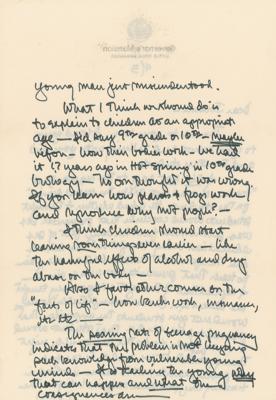 young man just misunderstood.
What I think we should do is
to explain to children at an appropriate
age — I'd say 9th grade or 10th — maybe
before — how their bodies work — We had
it 17 years ago in Hot Springs in 10th grade
biology — no one thought it was wrong.
If you learn how plants & frogs work
and reproduce why not people? —
I think children should start
learning some things even earlier — like
the harmful effects of alcohol and drug
abuse on the body —
Also I favor other courses on the
"facts of life" — how banks work, insurance,
etc etc —
The soaring rate of teenage pregnancy
indicates that the problem is not keeping
such knowledge from vulnerable young
minds — It is teaching the young
that can happen and what the
consequences are —